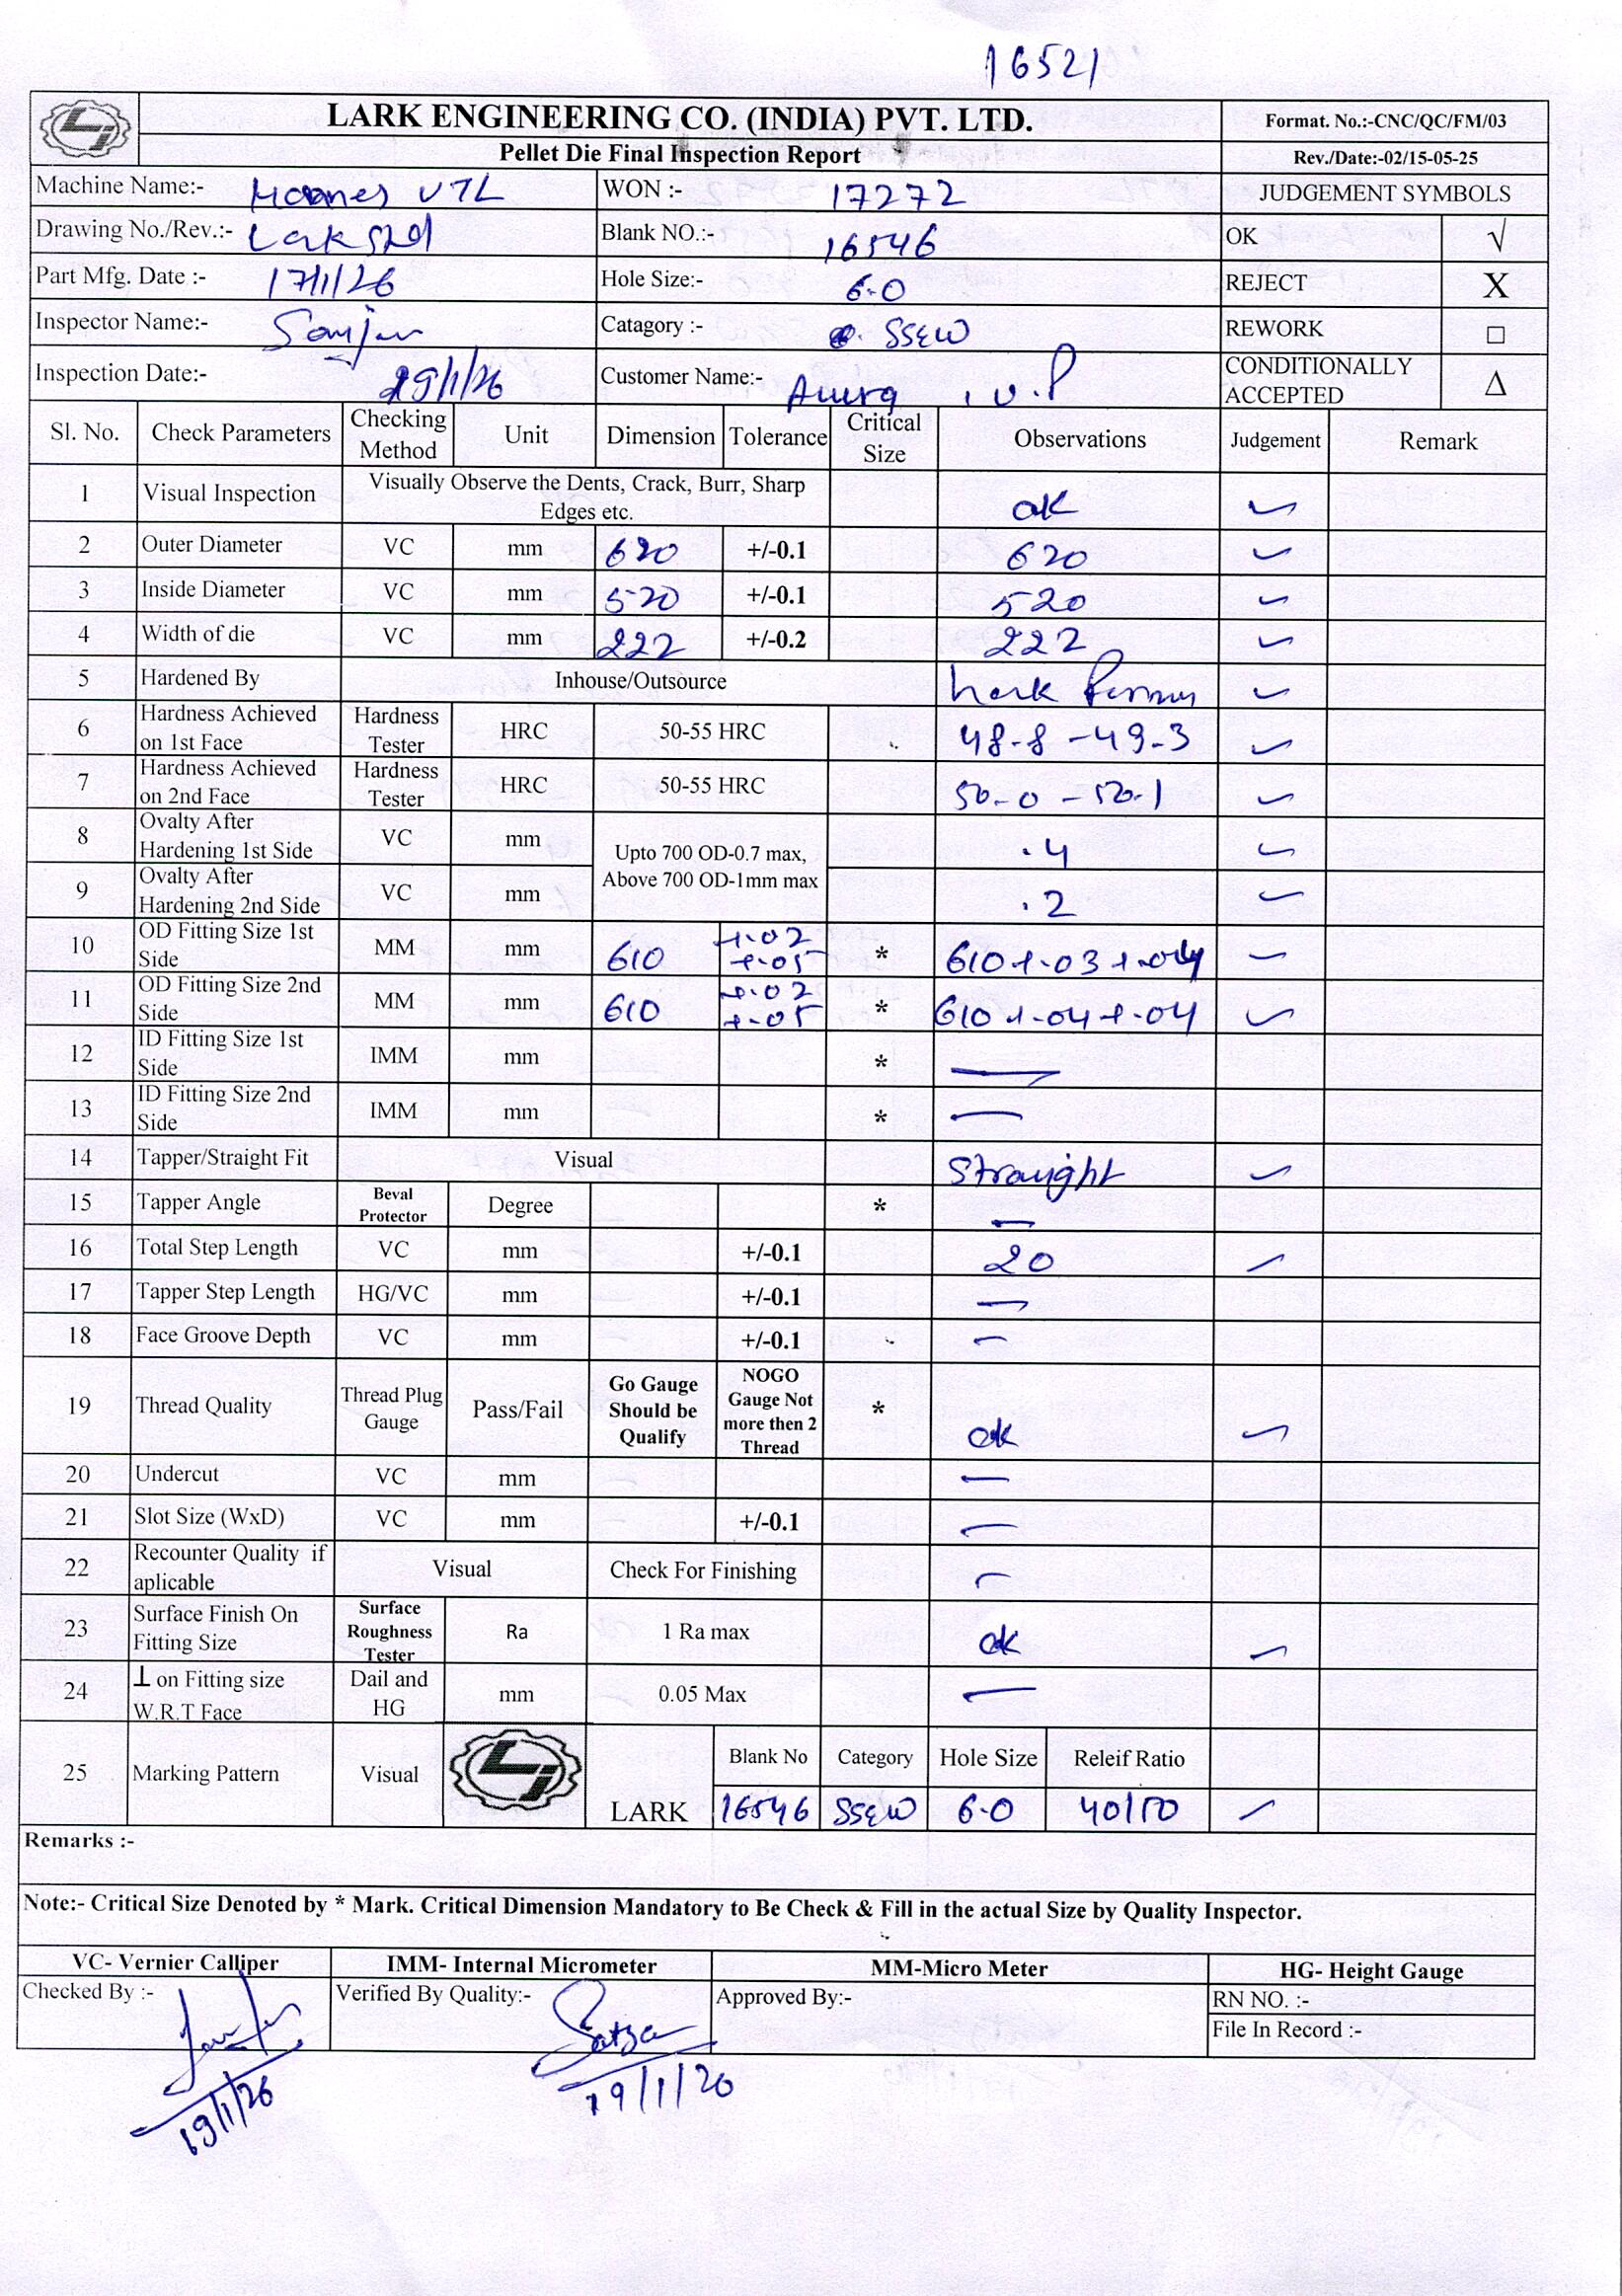 16521
LARK ENGINEERING CO. (INDIA) PVT. LTD.
Format. No.:-CNC/QC/FM/03
Pellet Die Final Inspection Report
Rev./Date:-02/15-05-25
Machine Name:- VTL WON :- 17272 JUDGEMENT SYMBOLS
Drawing No./Rev.:- Lark Blank NO.:- 16546 OK √
Part Mfg. Date :- 17/1/26 Hole Size:- 6.0 REJECT X
Inspector Name:- Catagory :- SSEW REWORK □
Inspection Date:- Customer Name:- U.P CONDITIONALLY ACCEPTED Δ
Sl. No. Check Parameters Checking Method Unit Dimension Tolerance Critical Size Observations Judgement Remark
1 Visual Inspection Visually Observe the Dents, Crack, Burr, Sharp Edges etc. ok ✓
2 Outer Diameter VC mm 620 +/-0.1 620 ✓
3 Inside Diameter VC mm 520 +/-0.1 520 ✓
4 Width of die VC mm 222 +/-0.2 222 ✓
5 Hardened By Inhouse/Outsource Lark ✓
6 Hardness Achieved on 1st Face Hardness Tester HRC 50-55 HRC 48.8 - 49.3 ✓
7 Hardness Achieved on 2nd Face Hardness Tester HRC 50-55 HRC 50.0 - 50.1 ✓
8 Ovalty After Hardening 1st Side VC mm Upto 700 OD-0.7 max, Above 700 OD-1mm max .4 ✓
9 Ovalty After Hardening 2nd Side VC mm .2 ✓
10 OD Fitting Size 1st Side MM mm 610 +.02 +.05 * 610 +.03 +.04 ✓
11 OD Fitting Size 2nd Side MM mm 610 +.02 +.05 * 610 +.04 +.04 ✓
12 ID Fitting Size 1st Side IMM mm * —
13 ID Fitting Size 2nd Side IMM mm * —
14 Tapper/Straight Fit Visual Straight ✓
15 Tapper Angle Beval Protector Degree * —
16 Total Step Length VC mm +/-0.1 20 ✓
17 Tapper Step Length HG/VC mm +/-0.1 —
18 Face Groove Depth VC mm +/-0.1 —
19 Thread Quality Thread Plug Gauge Pass/Fail Go Gauge Should be Qualify NOGO Gauge Not more then 2 Thread * ok ✓
20 Undercut VC mm —
21 Slot Size (WxD) VC mm +/-0.1 —
22 Recounter Quality if aplicable Visual Check For Finishing —
23 Surface Finish On Fitting Size Surface Roughness Tester Ra 1 Ra max ok ✓
24 ⊥ on Fitting size W.R.T Face Dail and HG mm 0.05 Max —
25 Marking Pattern Visual LARK Blank No Category Hole Size Releif Ratio
16546 SSEW 6.0 40/50 ✓
Remarks :-
Note:- Critical Size Denoted by * Mark. Critical Dimension Mandatory to Be Check & Fill in the actual Size by Quality Inspector.
VC- Vernier Calliper IMM- Internal Micrometer MM-Micro Meter HG- Height Gauge
Checked By :- Verified By Quality:- Approved By:- RN NO. :-
File In Record :-
19/1/26 19/1/26